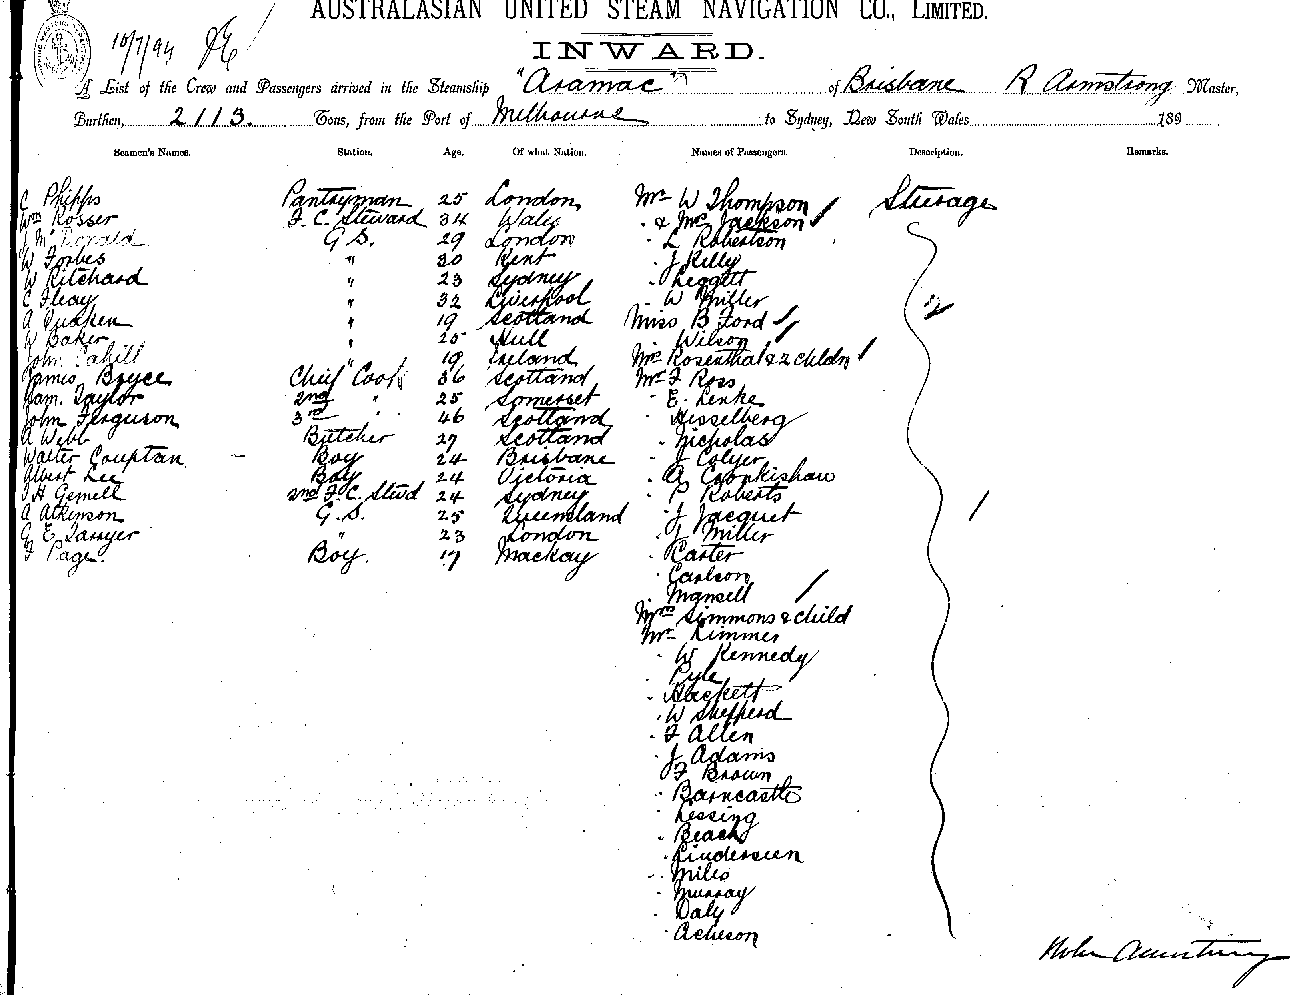 AUSTRALASIAN UNITED STEAM NAVIGATION CO., LIMITED.
10/7/94
INWARD.
A List of the Crew and Passengers arrived in the Steamship "Aramac" of Brisbane R Armstrong Master,
Burthen, 2113 Tons, from the Port of Melbourne to Sydney, New South Wales 189
Seamen's Names. Station. Age. Of what Nation. Names of Passengers. Description. Remarks.
C Phipps Pantryman 25 London Mr W Thompson Steerage
Wm Rosser F.C. Steward 34 Wales & Mrs Jackson
J McDonald G.S. 29 London L Robertson
W Forbes " 30 Kent J Kelly
W Pitchard " 23 Sydney Leggett
C Fleay " 32 Liverpool W Miller
A " 19 Scotland Miss B Ford
W Baker " 25 Hull Wilson
John Cahill " 19 Ireland Mrs Rosenthal & 2 childn
James Bryce Chief Cook 36 Scotland Mr F Ross
Sam. Taylor 2nd " 25 Somerset E. Lenke
John Ferguson 3rd " 46 Scotland Hesselberg
A Webb Butcher 27 Scotland Nicholas
Walter Couptan Boy 24 Brisbane J Colyer
Albert Lee Boy 24 Victoria A Cronkishaw
J H Gemell 2nd F.C. Stwd 24 Sydney P Roberts
A Atkinson G.S. 25 Queensland J Jacquet
G E Sawyer " 23 London G Miller
F Page Boy. 17 Mackay Karter
Carlson
Mansell
Mrs Simmons & child
Mr Kimmer
W Kennedy
Pyle
Hackett
W Shepperd
F Allen
J Adams
F Brown
Barncastle
Lessing
Beach
Linderseen
Miles
Murray
Daly
Acheson
Armstrong